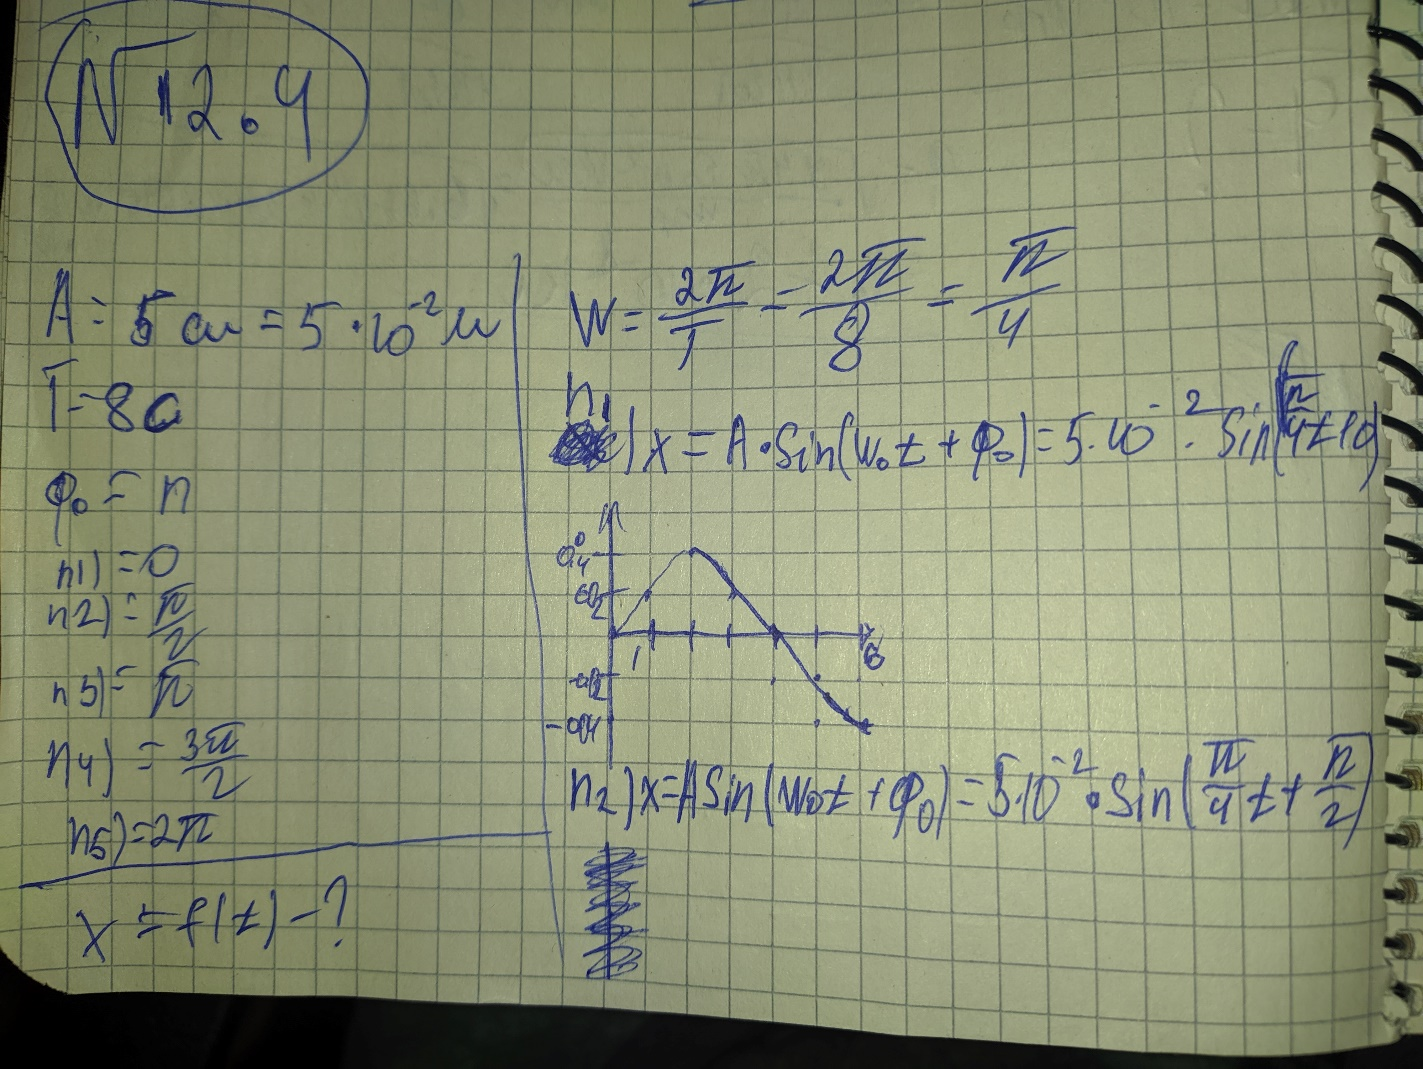 N 12.4
A = 5 см = 5·10⁻² м
T = 8 с
φ₀ = n
n1) = 0
n2) = π/2
n3) = π
n4) = 3π/2
n5) = 2π
x = f(t) - ?
W = 2π/T = 2π/8 = π/4
n₁) x = A·Sin(W₀t + φ₀) = 5·10⁻²·Sin(π/4 t + 0)
1
6
n₂) x = A Sin(W₀t + φ₀) = 5·10⁻²·Sin(π/4 t + π/2)